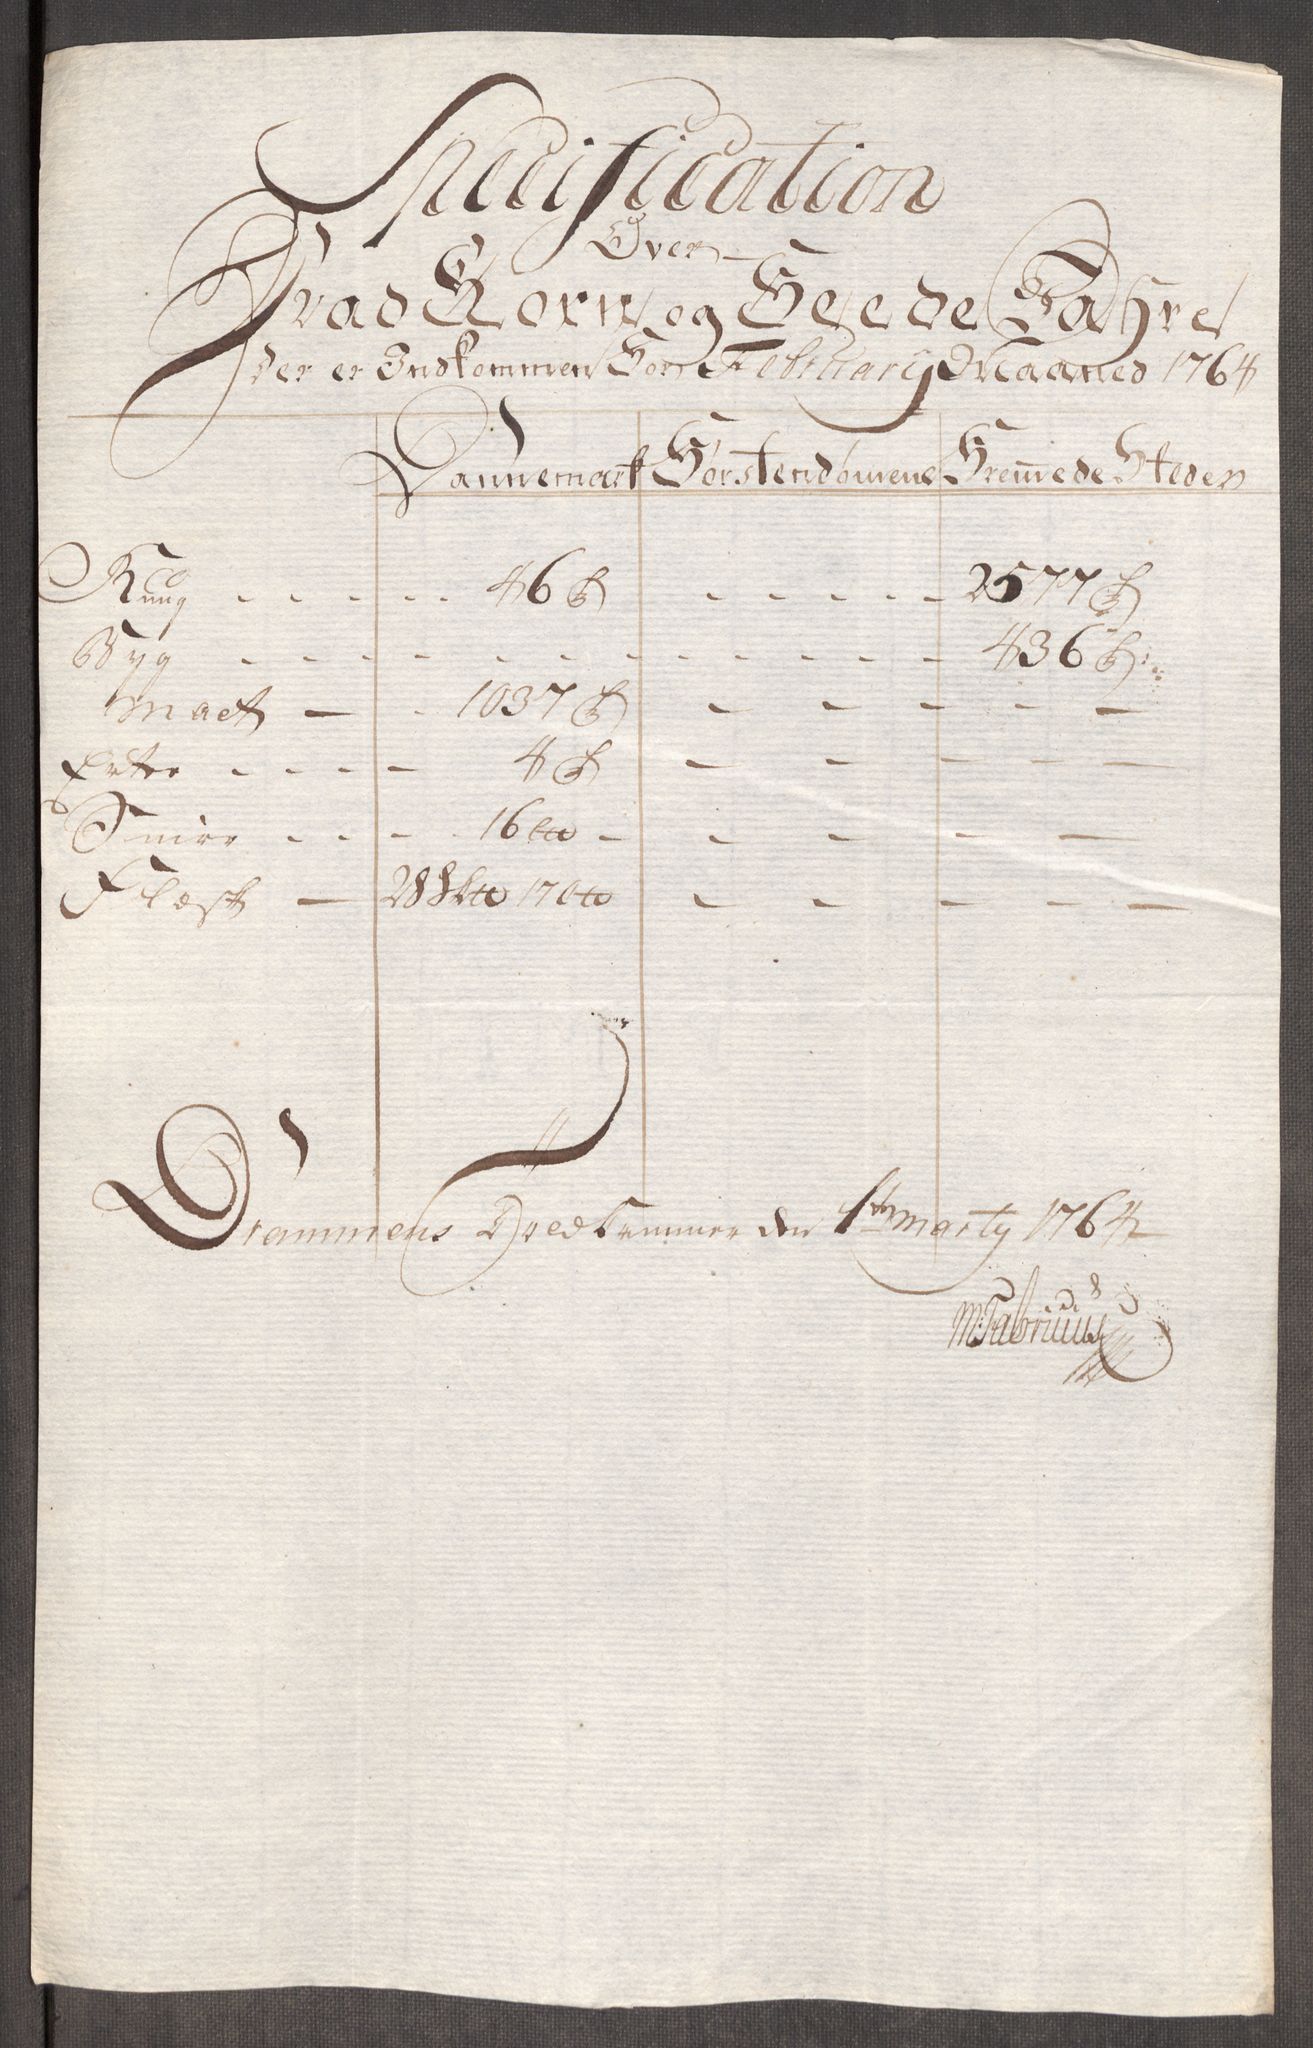 Specification
Over
Hvad Korn og Feede Vahre
der er Indkommen For February Maaned 1764
Dannemark Förstendömene Fremede Steder
Rug 46 2577
Byg 436
Malt 1037
Erter 4
Smör 16
Flesk 28 170
Drammens den 1te Marty 1764
M: Fabritius